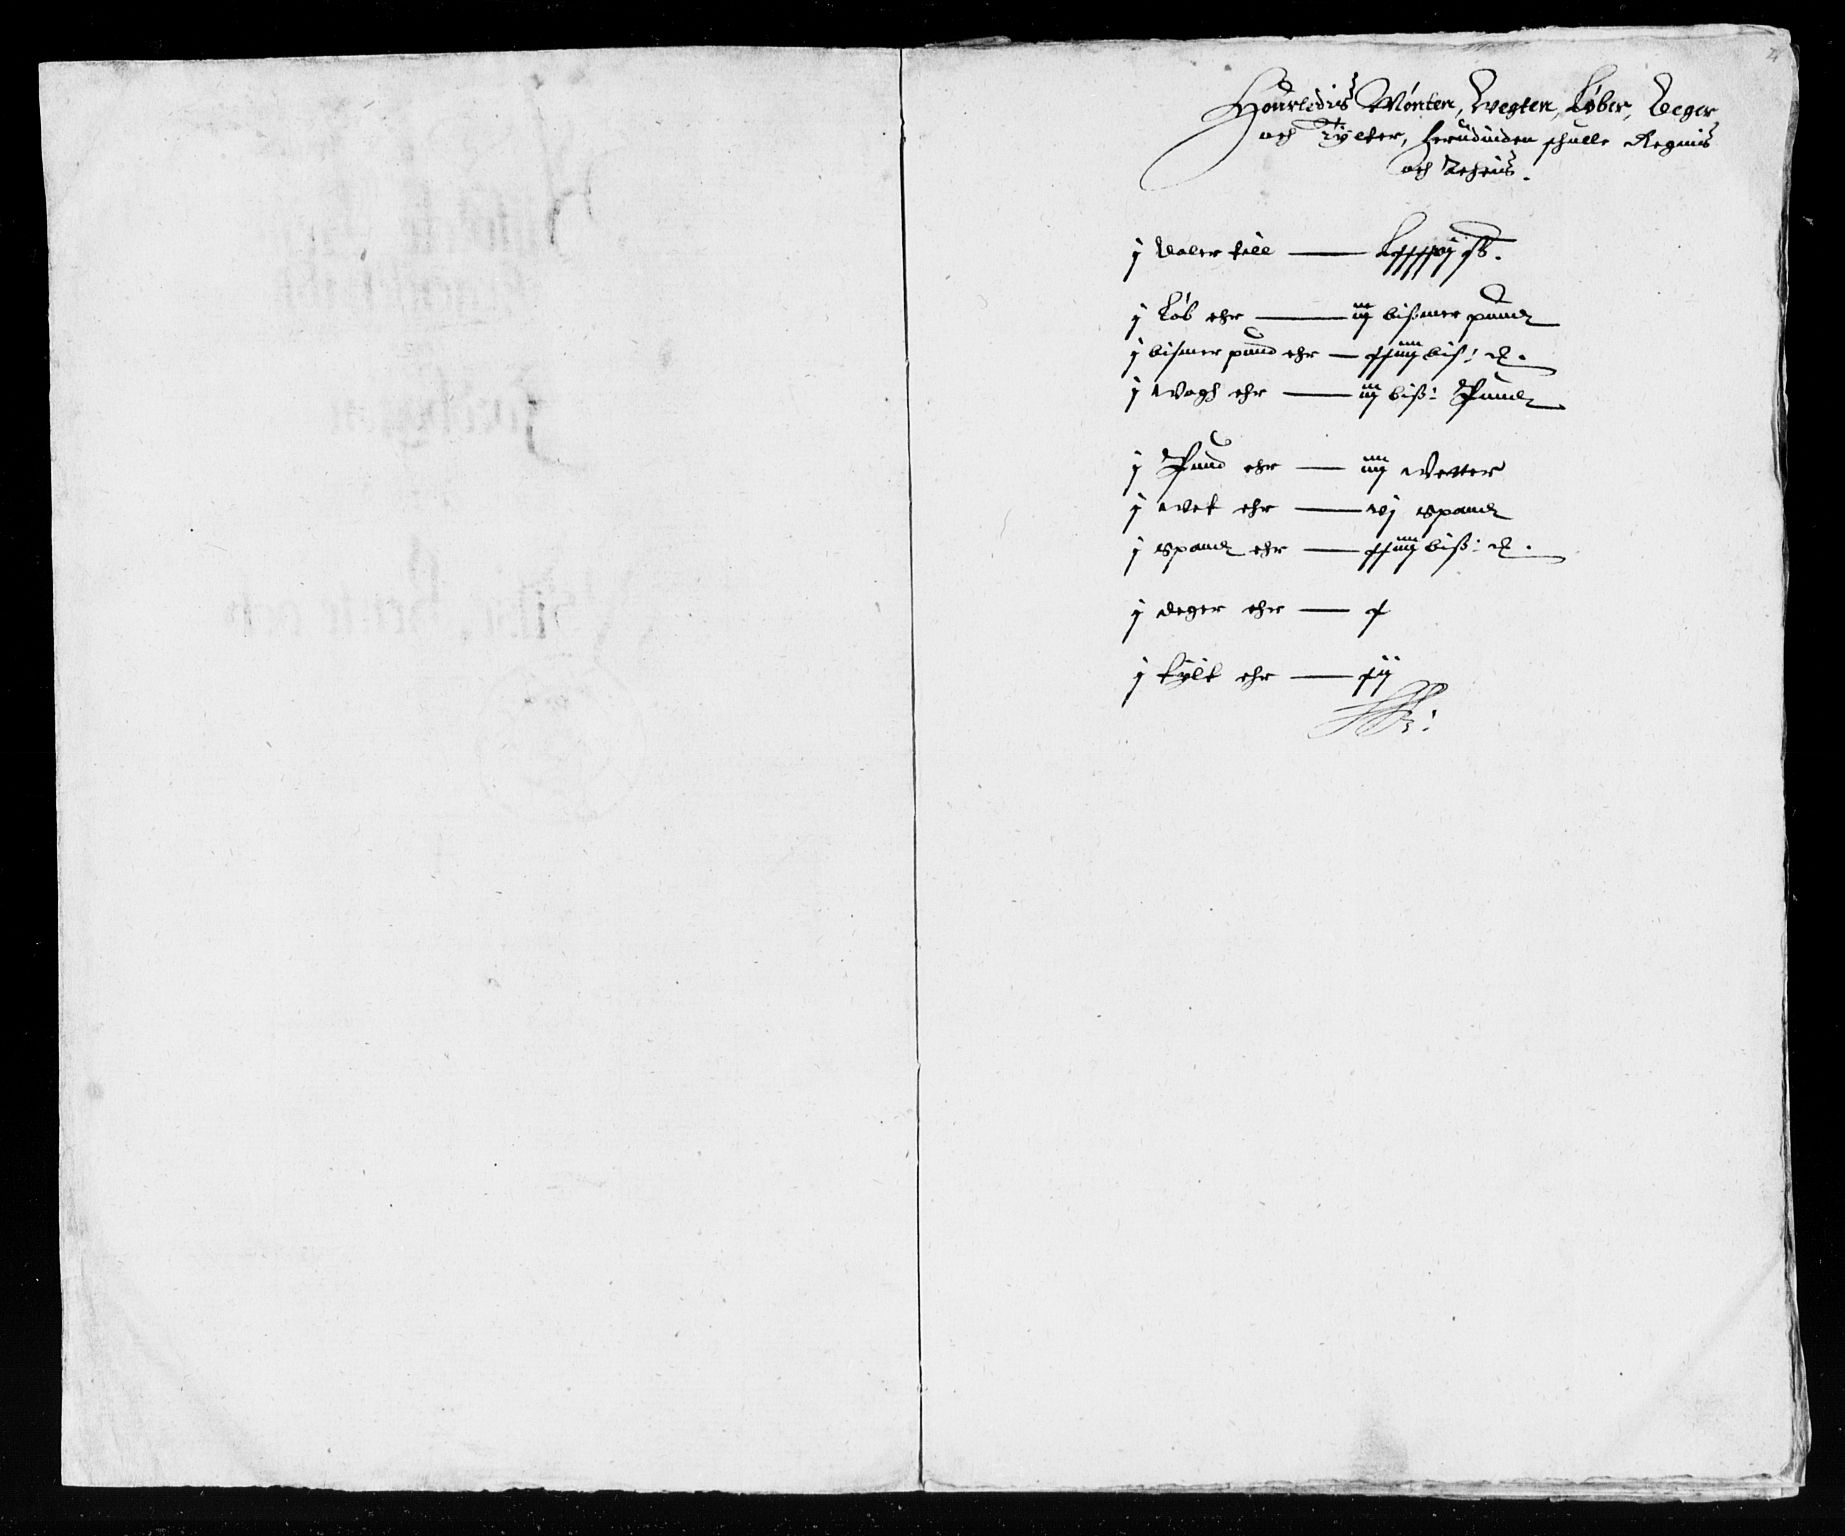 2
Hourledis Mønten, Vegten, Løber, Deger
och Tylter, herudinden schulle Regnis
och
j Daler till — Lxxxxvj sk.
j Løb ehr — iij bißmer pund
j bismer pund ehr — xxiiij biß: 
j Wogh ehr — iij biß: Pund
j Pund ehr — iiij Wetter
j Wet ehr — vj spand
j spand ehr — xxiiij biß: 
j deger ehr — x
j tylt ehr — xij